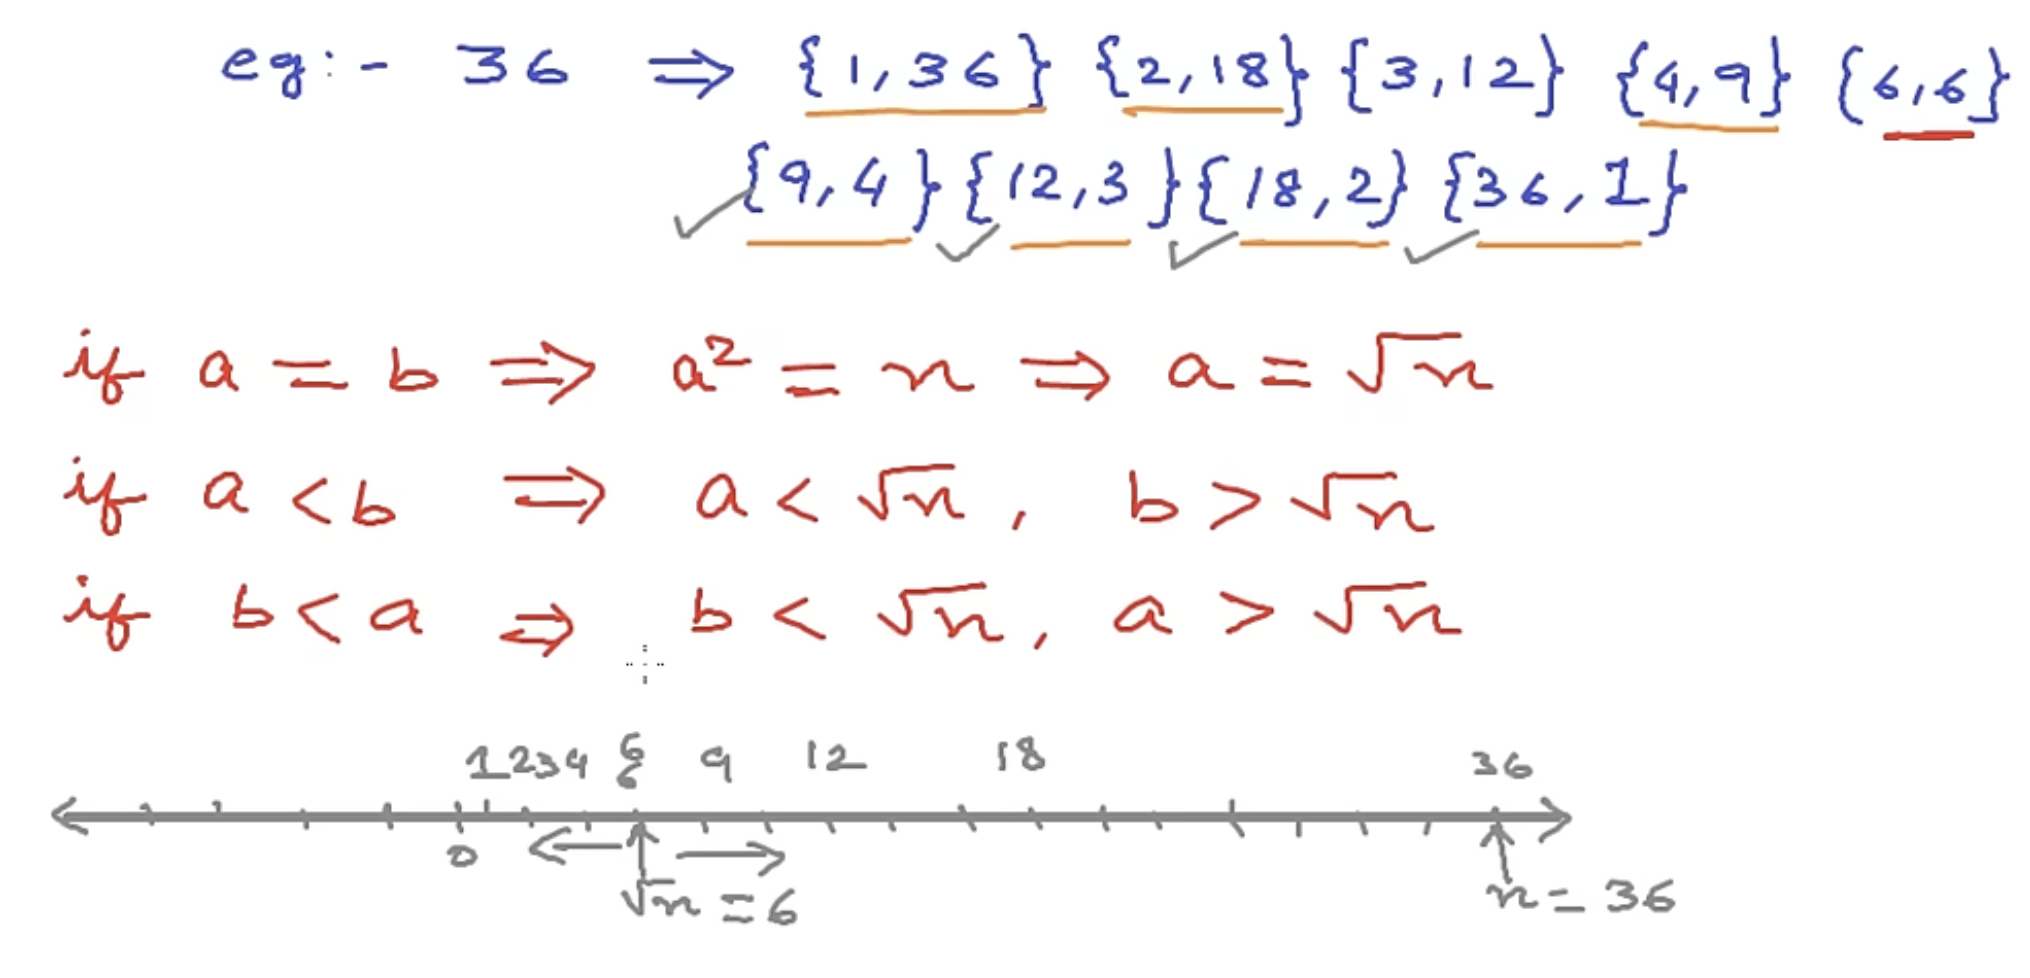 eg:- 36 ⇒ {1,36} {2,18} {3,12} {4,9} {6,6}
{9,4} {12,3} {18,2} {36,1}
if a = b ⇒ a² = n ⇒ a = √n
if a < b ⇒ a < √n, b > √n
if b < a ⇒ b < √n, a > √n
1 2 3 4 6 9 12 18 36
6
0
√n = 6 n = 36